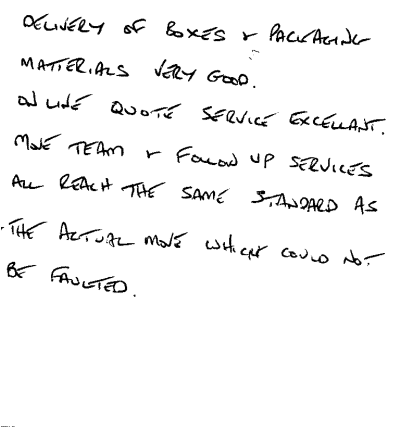 DELIVERY OF BOXES & PACKAGING
MATTERIALS VERY GOOD.
ON LINE QUOTE SERVICE EXCELLANT.
MOVE TEAM & FOLLOW UP SERVICES
ALL REACH THE SAME STANDARD AS
THE ACTUAL MOVE WHICH COULD NOT
BE FAULTED.